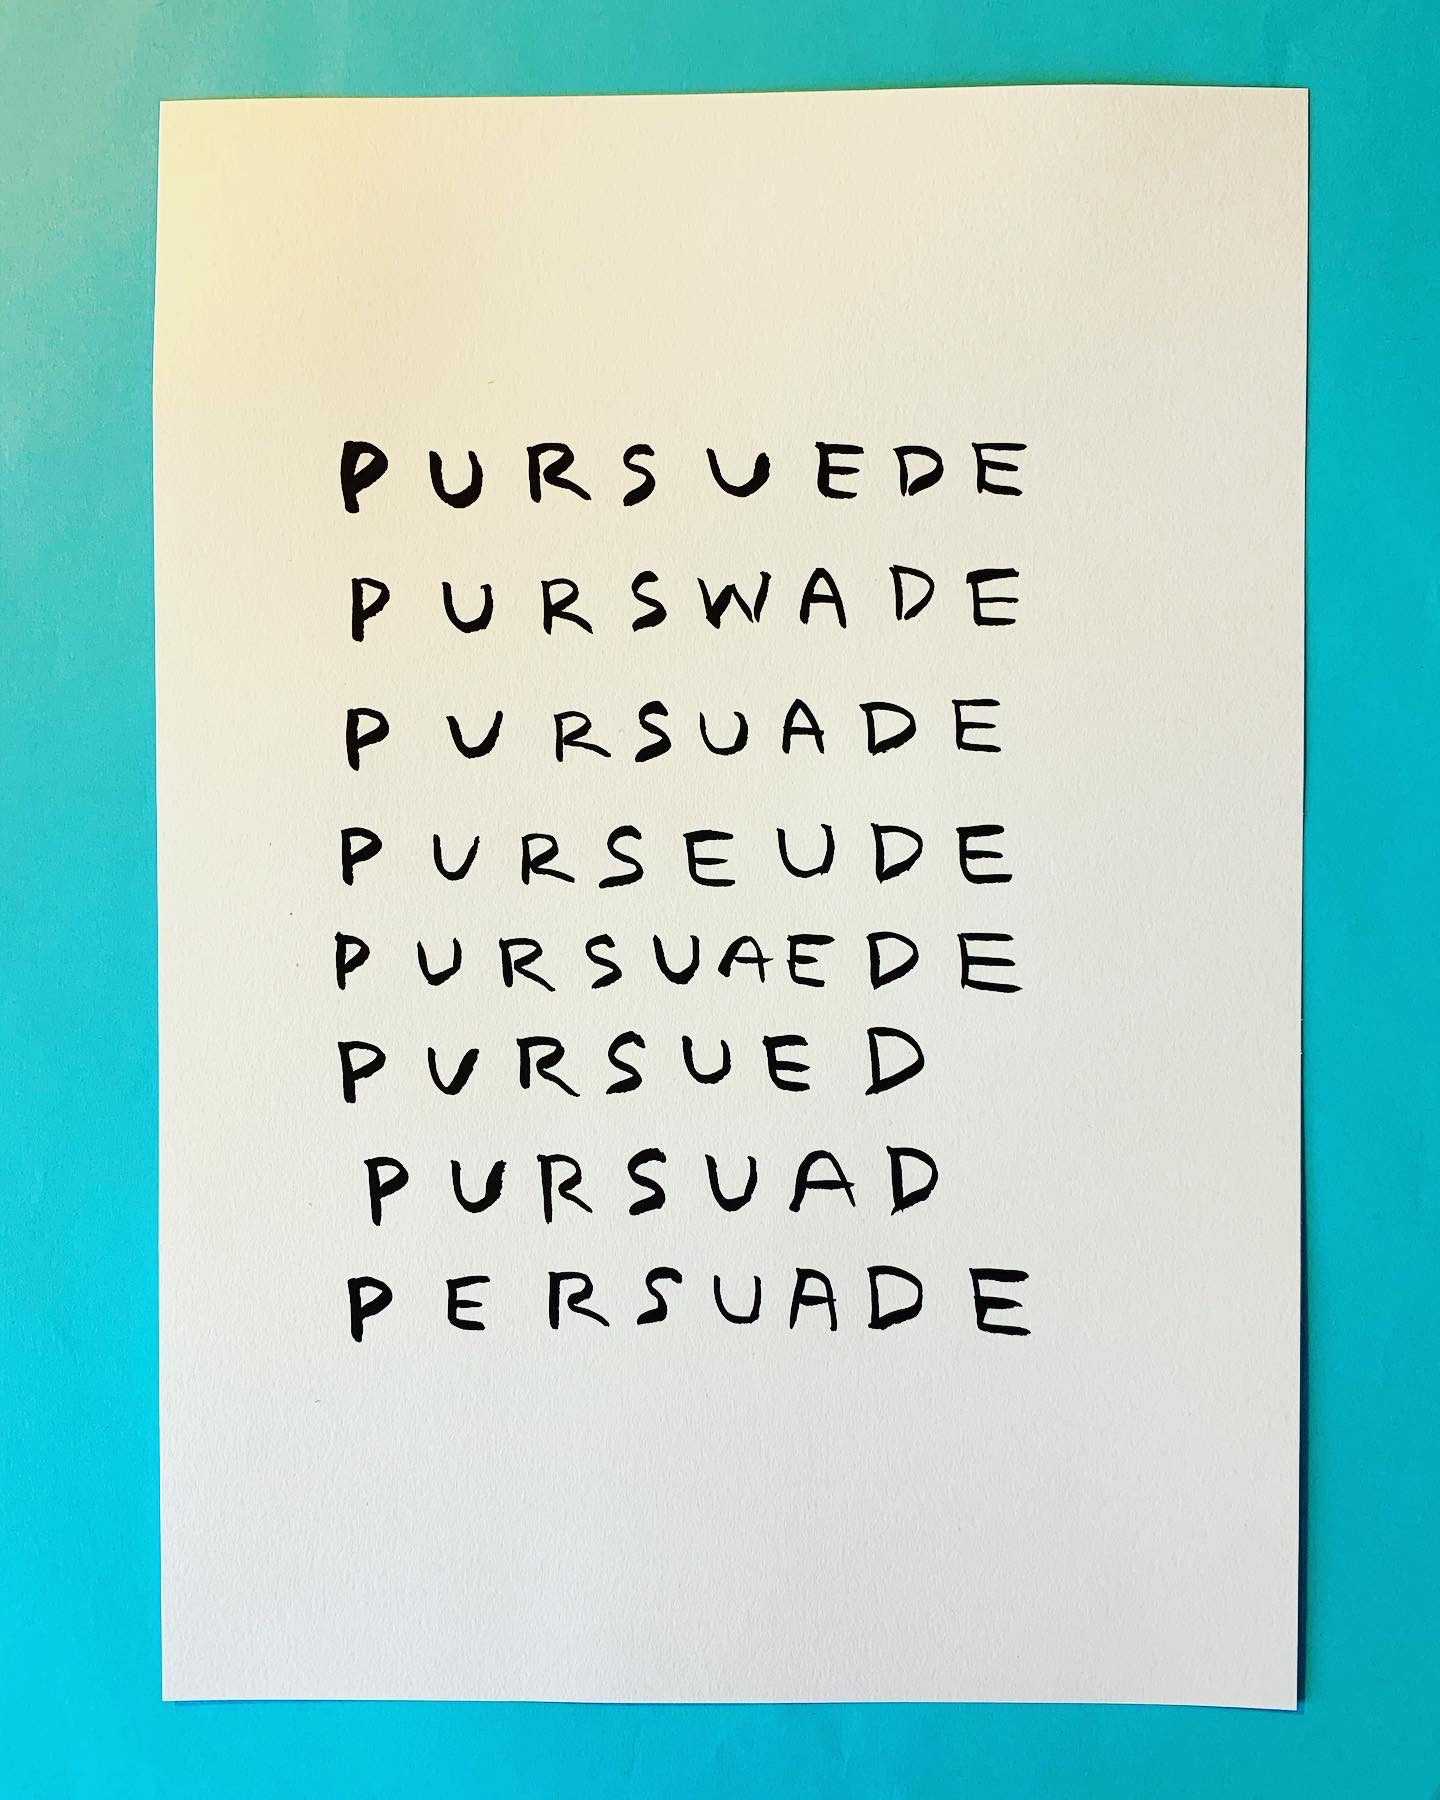 PURSUEDE
PURSWADE
PURSUADE
PURSEUDE
PURSUAEDE
PURSUED
PURSUAD
PERSUADE